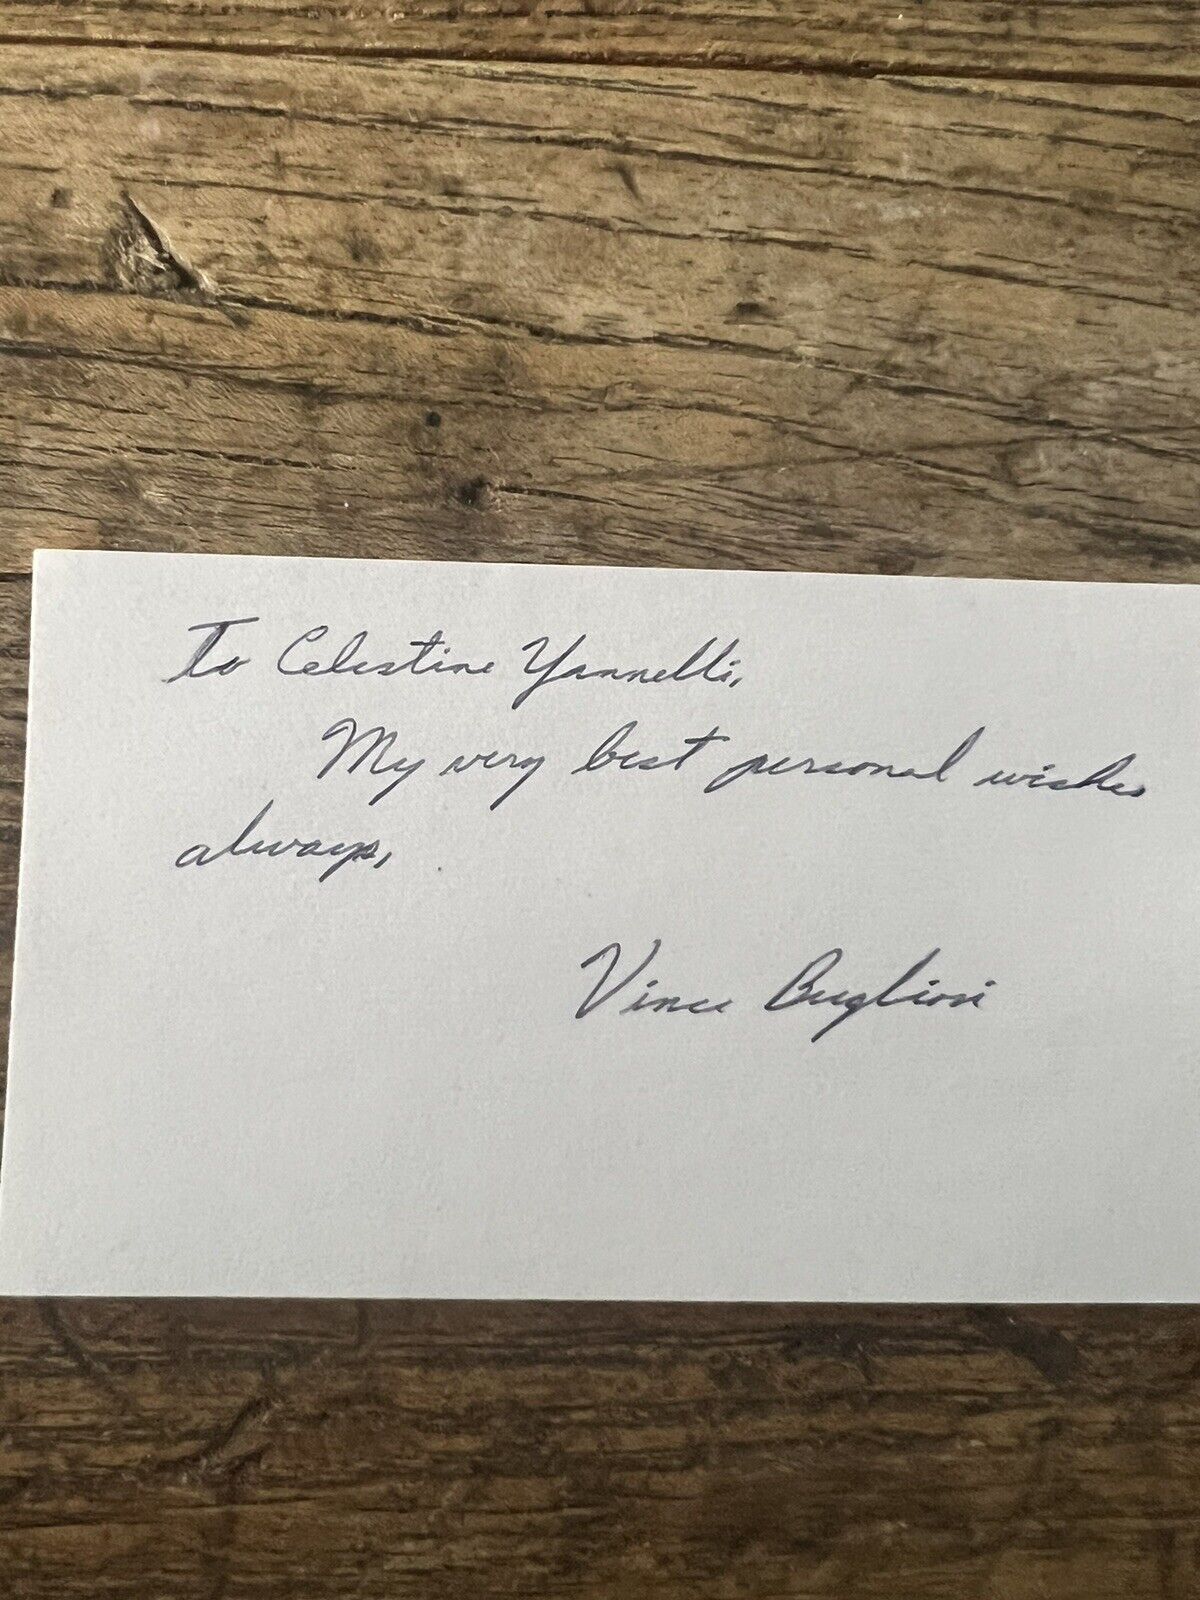 To Celestine Yannelli,
My very best personal wishes
always,
Vince Bugliosi